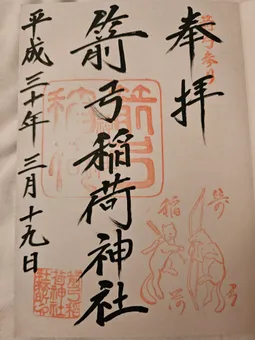 奉拝
箭弓稲荷神社
平成三十年三月十九日
箭弓
稲荷
箭弓稲
荷神社